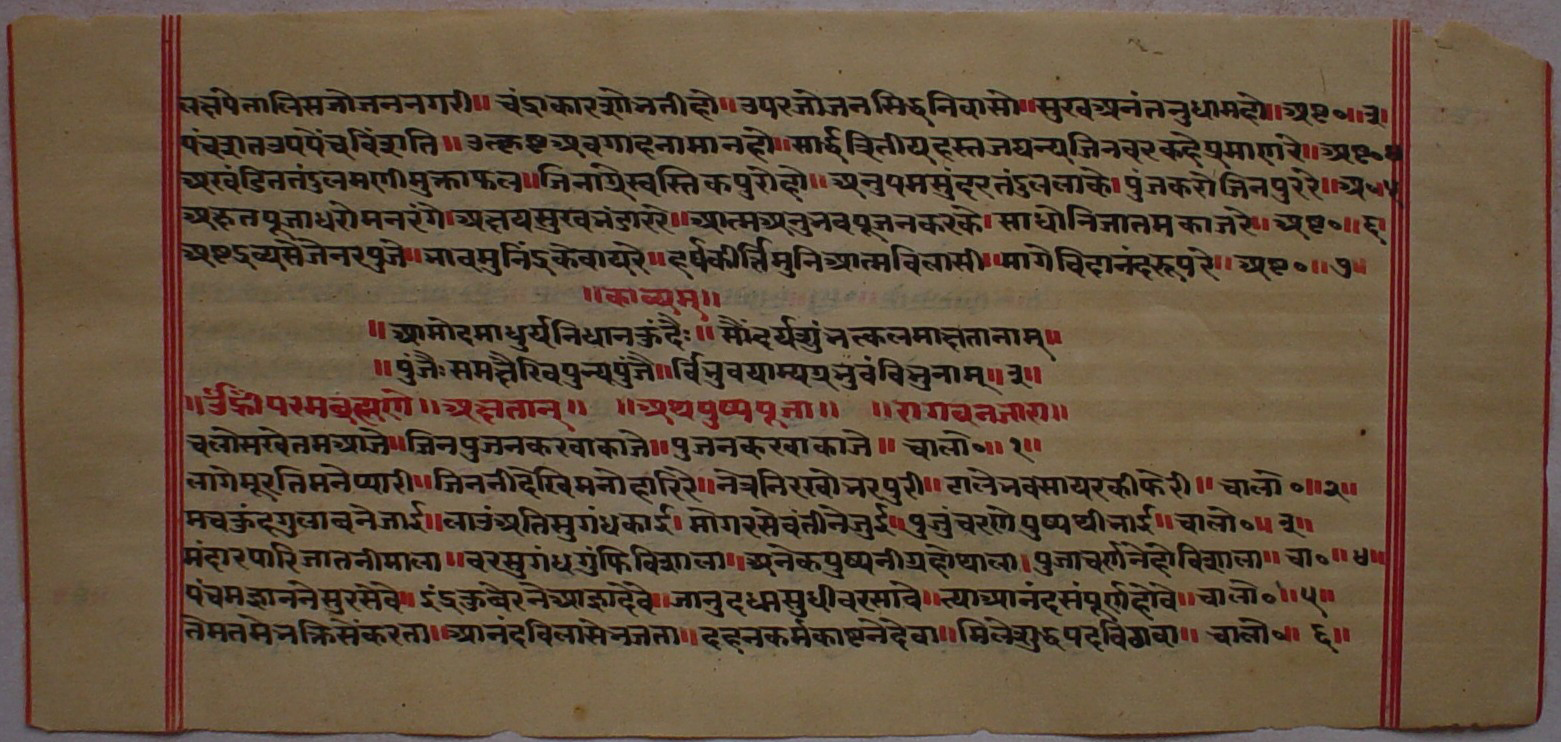 लक्षपेतालिसजोजननगरी॥ चंद्राकारशोनतीहो॥ उपरजोजनसिद्धनिवासो॥ सुखअनंतनुधामहो॥ अष्ट०॥३॥
पंचशतउपपंचविंशति॥ उत्कृष्टअवगाहनामानहो॥ सार्द्धत्रितीयहस्तजघन्यजिनवरकहेप्रमाणरे॥ अष्ट०४
अखंडिततंडुलमणीमुक्ताफल॥ जिनाग्रेस्वस्तिकपुरोहो॥ अनुपमसुंदरतंडुललाके। पुंजकरोजिनपुररे॥ अ०॥५
अक्षतपूजाधरोमनरंगे। अक्षयसुखनंडाररे॥ आत्मअनुनवपूजनकरके। साधोनिजातमकाजरे॥ अष्ट०॥६॥
अष्टद्रव्यसेजेनरपुजे॥ नावमुनिंद्रकेवायरे॥ हर्षकीर्त्तिमुनिआत्मविलासी॥ मागेचिदानंदरूपरे॥ अष्ट०॥७॥
॥काव्यम्॥
॥आमोदमाधुर्यनिधानकुंदैः॥ सौंदर्यशुंनत्कलमाक्षतानाम्॥
॥पुंजैःसमक्षैरिवपुन्यपुंजै॥ र्विनुषयाम्यग्रनुवंविनुनाम्॥३॥
॥उँह्रीं परमब्रह्मणे॥ अक्षतान्॥ ॥अथपुष्पपूजा॥ ॥रागवनजारा॥
चलोसखेतमआजे॥ जिनपुजनकरवाकाजे॥ पुजनकरवाकाजे॥ चालो०॥१॥
लागेमूरतिमनेप्यारी॥ जिननीदेखिमनोहारिरे॥ नेत्रनिरखोनरपुरी॥ टालेनवसायरकीफेरी॥ चालो०॥२॥
मचकुंदगुलाबनेजाई॥ लाउंअतिसुगंधकाई। मोगरसेवंतीनेजुई॥ पुजुंचरणेपुष्पथीनाई॥ चालो०॥३॥
मंदारपारिजातनीमाला॥ वरसुगंधगुंफिविशाला॥ अनेकपुष्पनीग्रहोथाला। पुजाचर्णनेहोविशाला॥ चा०॥४॥
पंचमज्ञाननेसुरसेवे॥ इंद्रकुबेरनेआज्ञादेवे॥ जानुदघ्नसुधीवरसावे॥ त्याआनंदसंपूर्णहोवे॥ चालो०॥५॥
तेमतमेनक्तिसेंकरता॥ आनंदविलासेनजता॥ दहनकर्मकाष्टनेदेवा॥ मिलेशुद्धपदविठावा॥ चालो०॥६॥